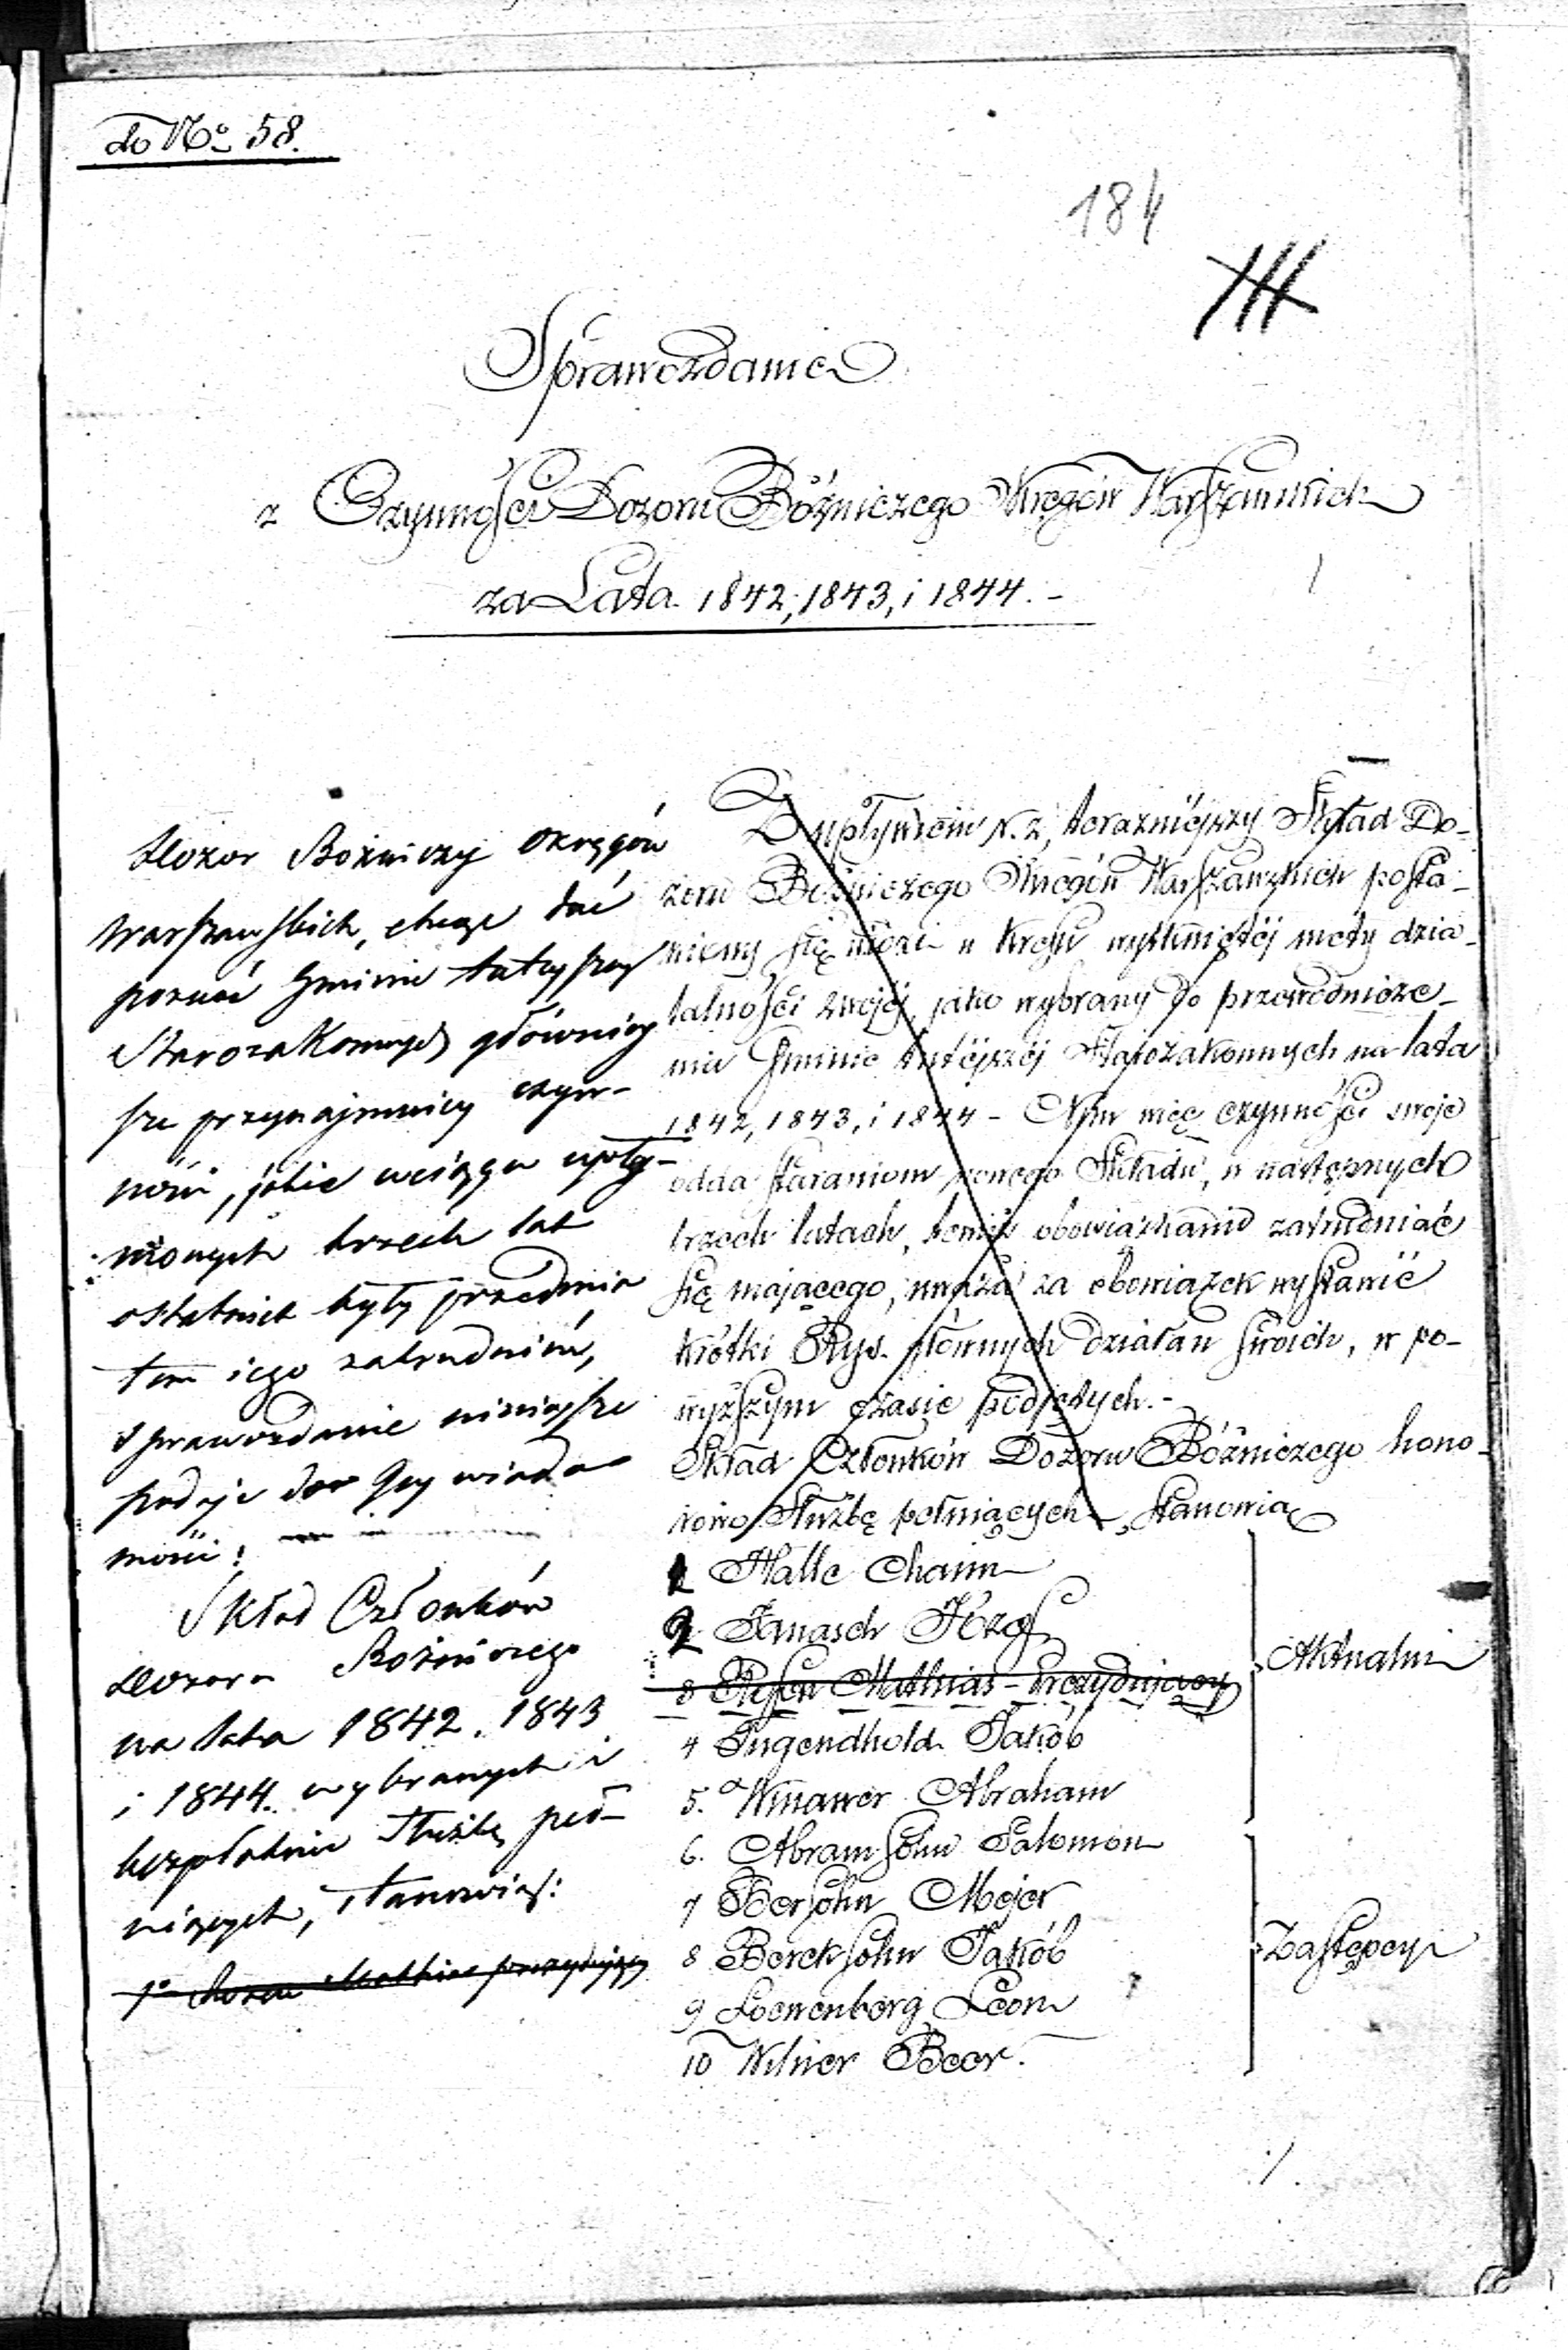 do No 58.
184
Sprawozdanie
z Czynności Dozoru Bóżniczego Okręgów Warszawskich
za Lata 1842, 1843, i 1844. -
Dozor Bożniczy Okręgów
Warszawskich, chcąc dać
poznać Gminie tutejszej
Starozakonnych główniej
sze przynajmniej czyn-
ności, jakie w ciągu upły-
nionych trzech lat
ostatnich były przedmio
tem jego zatrudnień,
sprawozdanie niniejsze
podaje do Jey wiado-
mości:
Skład Członków
Dozoru Bożniczego
na lata 1842. 1843
i 1844. wybranych i
bezpłatnie służbę peł-
niących, stanowią:
1o Rosen Mathias prezydujący
Z upływem r. z, teraźniejszy Skład Do-
zoru Bóżniczego Okręgów Warszawskich posta-
wiony się widzi u kresu wytkniętéj mety dzia-
łalności swojéj, jako wybrany do przewodnicze-
nia Gminie tutéjszéj Starozakonnych na lata
1842, 1843, i 1844 - Nim więc czynności swoje
odda staraniom nowego Składu, w następnych
trzech latach, temiż obowiązkami zatrudniać
się mającego, uważa za obowiązek wystawić
krótki Rys głównych działań swoich, w po-
wyższym czasie podjętych. -
Skład Członków Dozoru Bóżniczego hono-
rowo Służbę pełniących, stanowią
1 Halle Chaim
2 Janasch Józef
3 Rosen Mathias - Prezydujący
4 Tugendhold Jakób
5. Winawer Abraham
Aktualni
6. Abramsohn Salomon
7 Bersohn Mejer
8 Bercksohn Jakób
9 Loewenberg Leon
10 Wilner Beer.
Zastępcy
./.